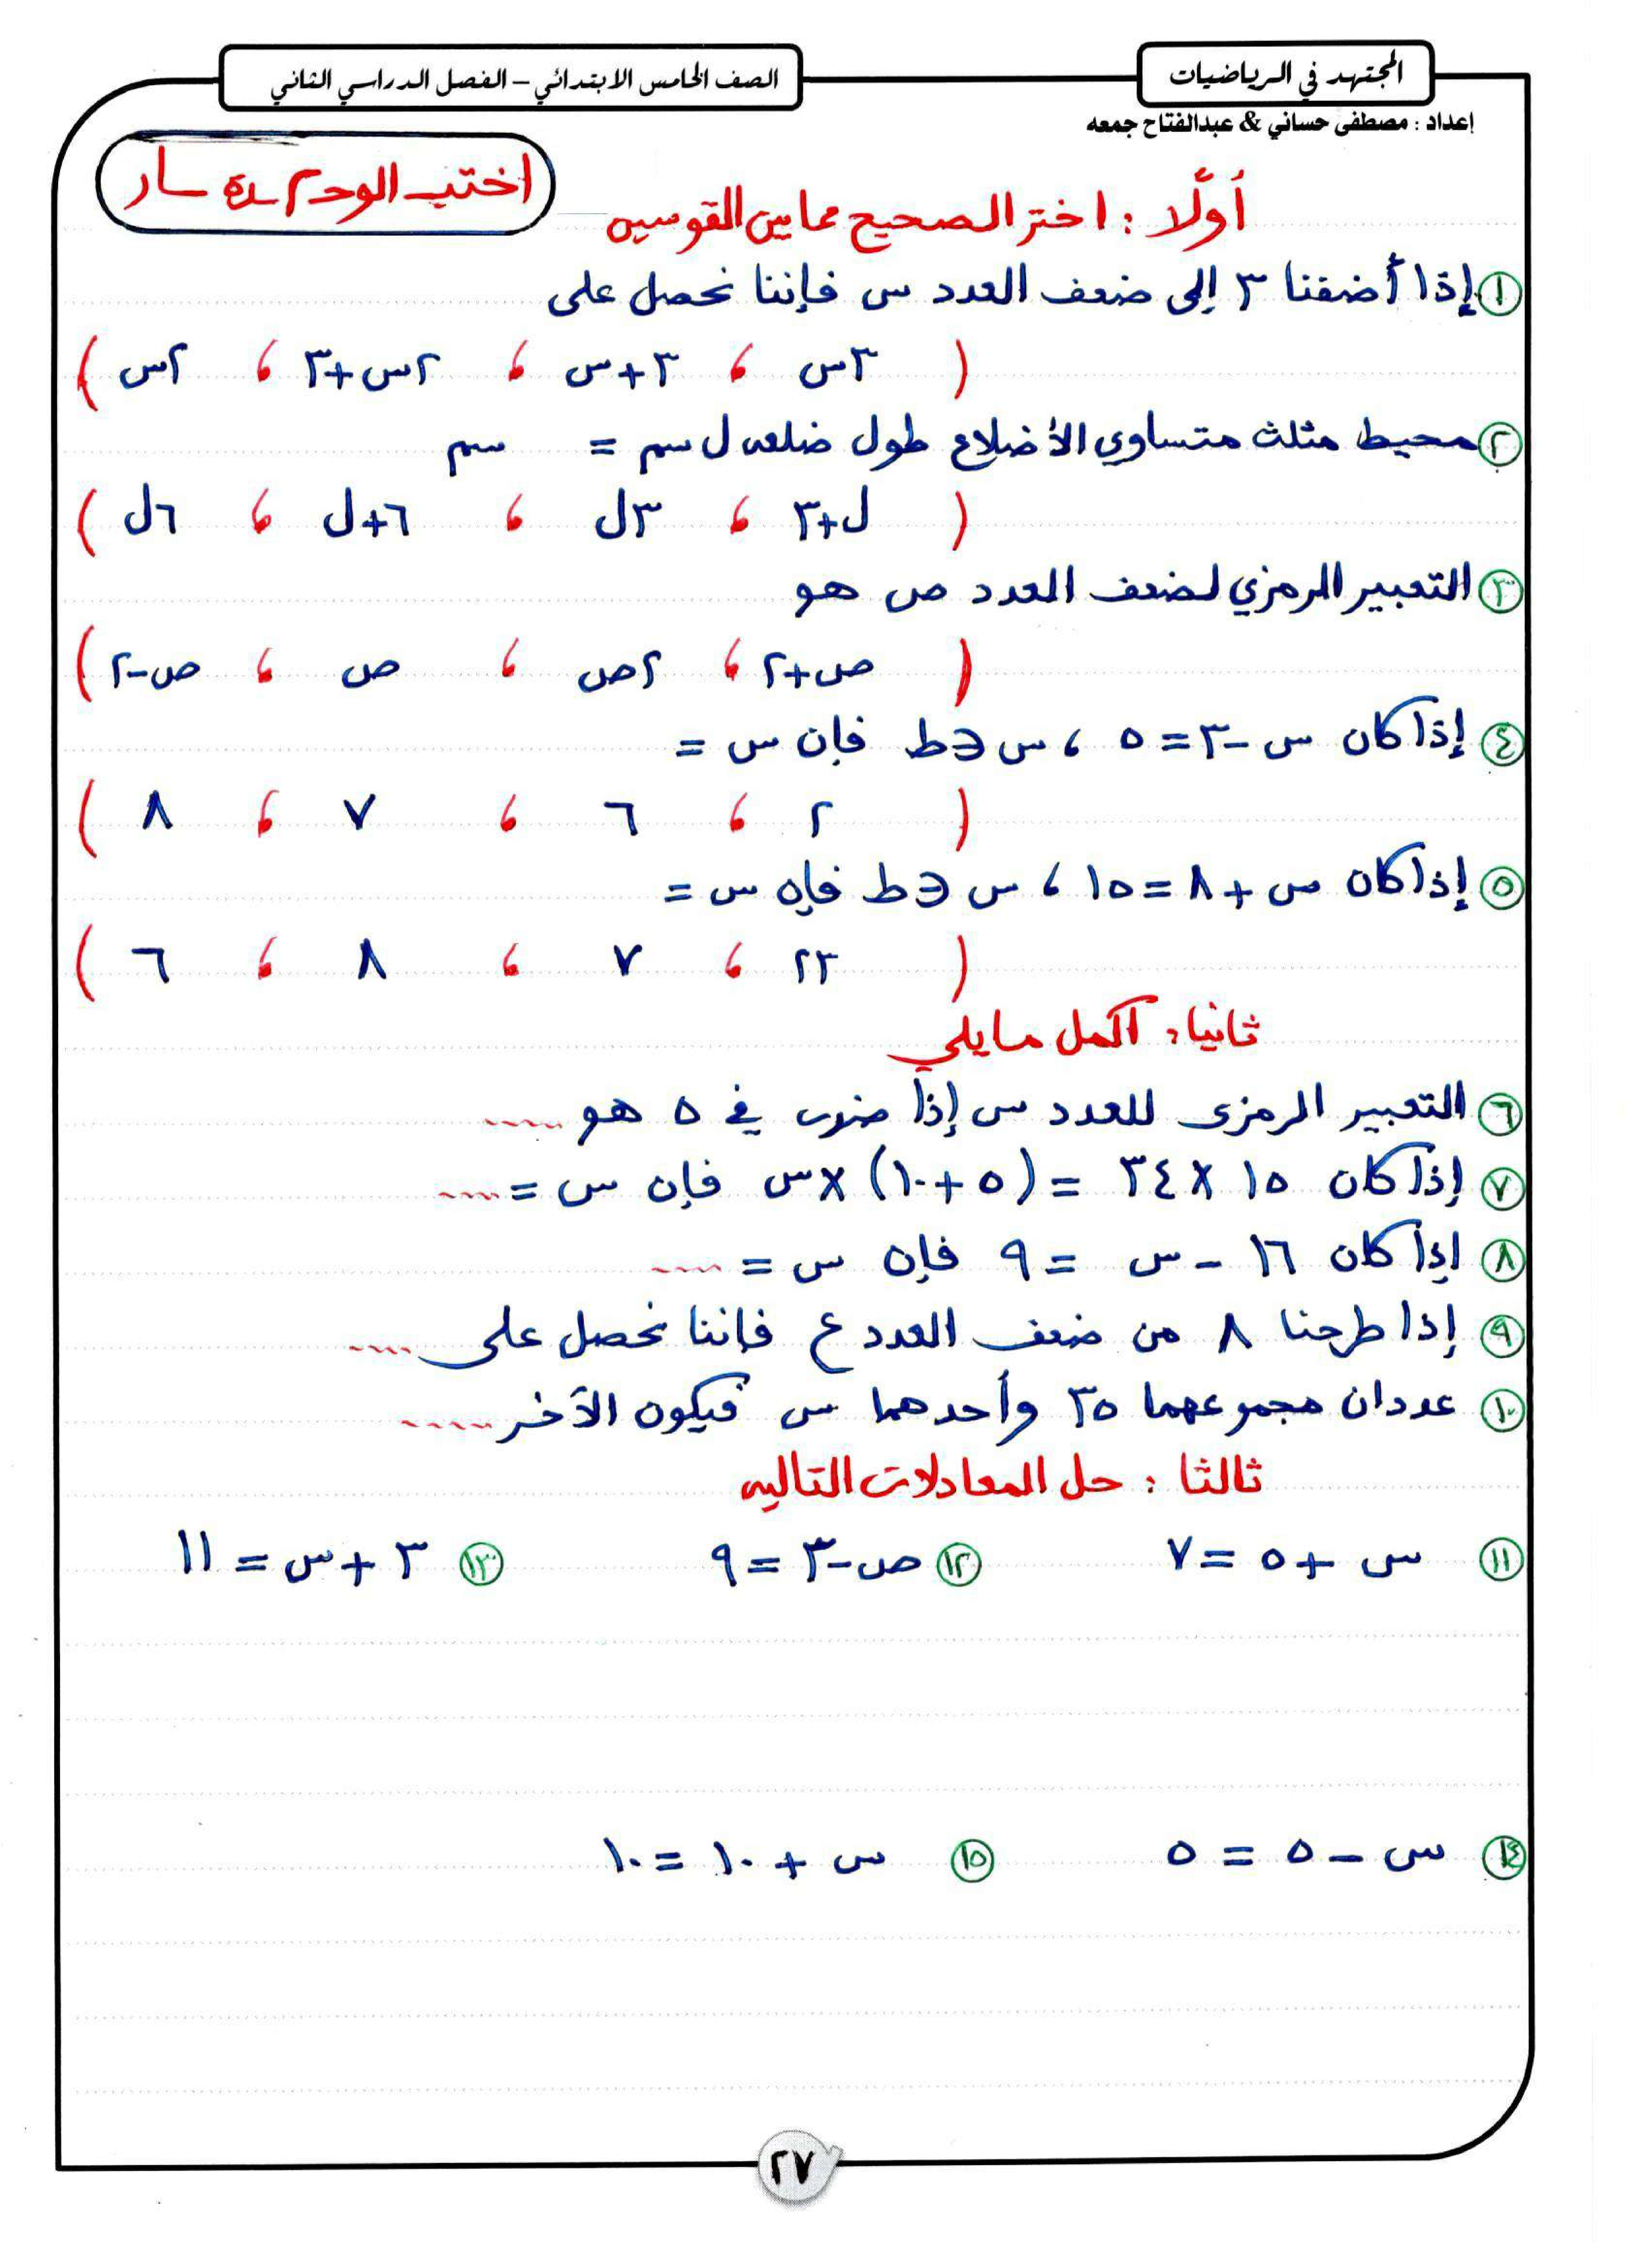 المجتهد في الرياضيات
الصف الخامس الابتدائي – الفصل الدراسي الثاني
إعداد : مصطفى حساني & عبدالفتاح جمعه
أولًا : اختر الصحيح مما بين القوسين
① إذا أضفنا ٣ إلى ضعف العدد س فإننا نحصل على
( ٣س ، ٣+س ، ٢س+٣ ، ٢س )
② محيط مثلث متساوي الأضلاع طول ضلعه ل سم = سم
( ل+٣ ، ٣ل ، ٦+ل ، ٦ل )
③ التعبير الرمزي لضعف العدد ص هو
( ص+٢ ، ٢ص ، ص ، ص-٢ )
④ إذا كان س -٣ = ٥ ، س ∋ ط فإن س =
( ٢ ، ٦ ، ٧ ، ٨ )
⑤ إذا كان س + ٨ = ١٥ ، س ∋ ط فإن س =
( ٢٣ ، ٧ ، ٨ ، ٦ )
ثانيا: اكمل مايلي
⑥ التعبير الرمزى للعدد س إذا ضرب في ٥ هو .....
⑦ إذا كان ١٥ × ٣٤ = (٥ + ١٠) × س فإن س = ....
⑧ إذا كان ١٦ - س = ٩ فإن س = ....
⑨ إذا طرحنا ٨ من ضعف العدد ع فإننا نحصل على ....
⑩ عددان مجموعهما ٣٥ وأحدهما س فيكون الآخر .....
ثالثا : حل المعادلات التاليه
⑪ س + ٥ = ٧ ⑫ ص-٣ = ٩ ⑬ ٣ + س = ١١
⑭ س - ٥ = ٥ ⑮ س + ١٠ = ١٠
٢٧